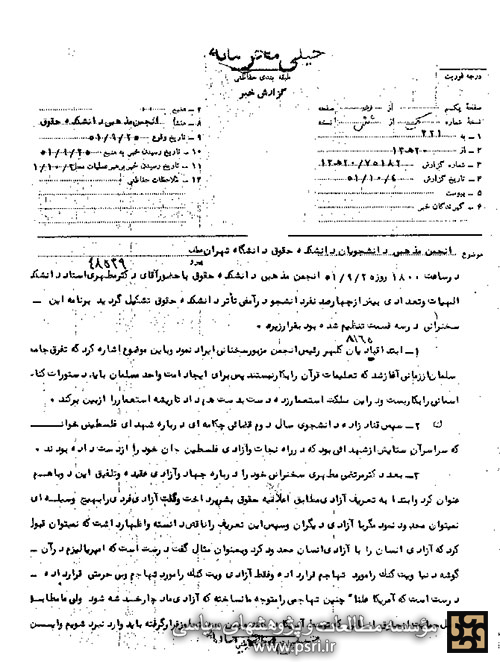 خیلی محرمانه
طبقه بندی حفاظتی
گزارش خبر
درجه فوریت
صفحه یکم از دو صفحه
نسخه شماره یک از شش نسخه
۱ – به ۳۲۱
۲ – از ۲۰ هـ ۱۲
۳ – شماره گزارش ۱۲هـ۲۰/۷۵۱۸۲
۴ – تاریخ گزارش ۵۱/۱۰/۴
۵ – پیوست
۶ – گیرندگان خبر
۷ – منبع
۸ – منشأ انجمن مذهبی دانشکده حقوق
۹ – تاریخ وقوع ۵۱/۹/۲۵
۱۰ – تاریخ رسیدن خبر به منبع ۵۱/۹/۲۵
۱۱ – تاریخ رسیدن خبر برهبر عملیات محل
۱۲ – ملاحظات حفاظتی
موضوع انجمن مذهبی دانشجویان دانشکده حقوق دانشگاه تهران
پیرو ۴۸۵۳۹
در ساعت ۱۸۰۰ روز ۵۱/۹/۲۵ انجمن مذهبی دانشکده حقوق با حضور آقای دکتر مطهری استاد دانشکده
الهیات و تعدادی بیش از چهارصد نفر دانشجو در آمفی تأتر دانشکده حقوق تشکیل گردید برنامه این –
سخنرانی در سه قسمت تنظیم شده بود بقرار زیر:
۸۱۶۵
۱– ابتدا قبادیان گلبهر رئیس انجمن مزبور سخنانی ایراد نمود و باین موضوع اشاره کرد که تفرق جامعه
مسلمان از زمانی آغاز شد که تعلیمات قرآن را بکار نبستند پس برای ایجاد امت واحد مسلمان باید دستورات کتاب
آسمانی را بکار بست و در این مملکت استعمار زده دست بدست هم داد تا ریشه استعمار را از بین برکند.
۲– سپس قنادزاده دانشجوی سال دوم قضائی چکامه ای درباره شهدای فلسطینی خواند –
که سراسر آن ستایش از شهدائی بود که در راه نجات و آزادی فلسطین جان خود را از دست داده بودند.
۳– بعد دکتر مرتضی مطهری سخنرانی خود را درباره جهاد و آزادی عقیده و تلفیق این دو با هم
عنوان کرد و ابتدا به تعریف آزادی مطابق اعلامیه حقوق بشر پرداخت و گفت آزادی فردی را بهیچ وسیله ای
نمیتوان محدود نمود مگر با آزادی دیگران و سپس این تعریف را ناقص دانسته و اظهار داشت که نمیتوان قبول
کرد که آزادی انسان را با آزادی انسان محدود کرد و بعنوان مثال گفت درست است که امپریالیزم در آن –
گوشه دنیا ویت کنگ را مورد تهاجم قرار داده و فقط آزادی ویت کنگ را مورد تهاجم و بی حرمتی قرار داده –
درست است که آمریکا علناً چنین تهاجمی را متوجه ما نساخته که آزادی ما دچار خدشه شود ولی ما مطابق
مؤسسه مطالعات و پژوهشهای سیاسی
www.psri.ir